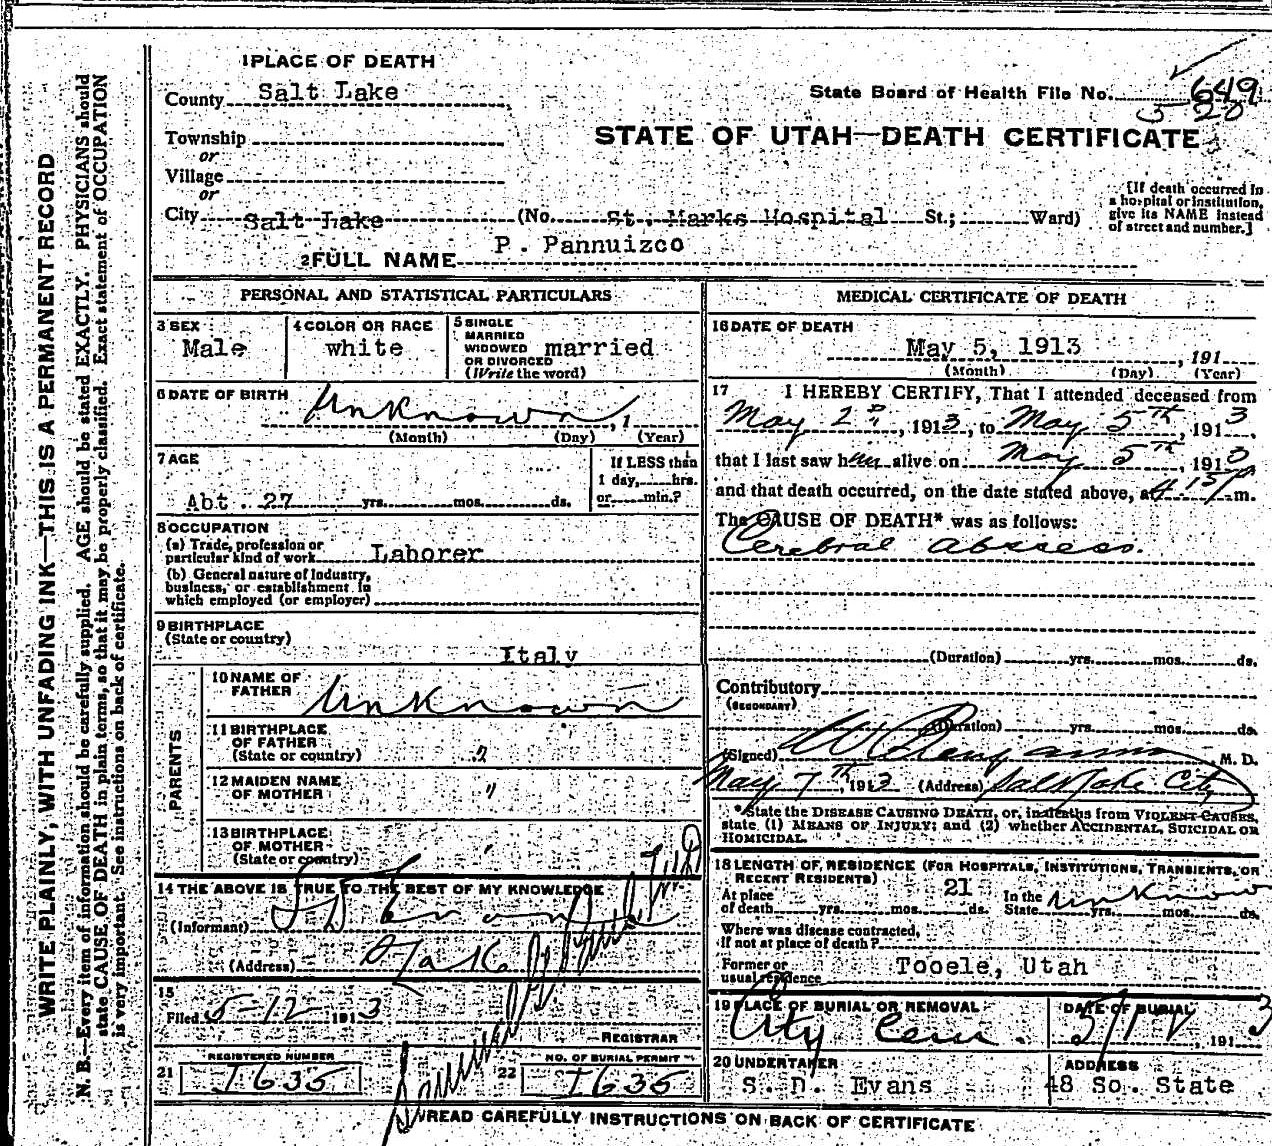 WRITE PLAINLY, WITH UNFADING INK—THIS IS A PERMANENT RECORD
N. B.—Every item of information should be carefully supplied. AGE should be stated EXACTLY. PHYSICIANS should
state CAUSE OF DEATH in plain terms, so that it may be properly classified. Exact statement of OCCUPATION
is very important. See instructions on back of certificate.
1 PLACE OF DEATH
County Salt Lake
State Board of Health File No. 649
5 20
STATE OF UTAH—DEATH CERTIFICATE
Township
or
Village
or
City Salt Lake (No. St. Marks Hospital St.; Ward)
[If death occurred in
a hospital or institution,
give its NAME instead
of street and number.]
2 FULL NAME P. Pannuizco
PERSONAL AND STATISTICAL PARTICULARS
3 SEX
Male
4 COLOR OR RACE
white
5 SINGLE
MARRIED
WIDOWED
OR DIVORCED
(Write the word)
married
6 DATE OF BIRTH
Unknown, 1
(Month) (Day) (Year)
7 AGE
Abt. 27 yrs. mos. ds.
If LESS than
1 day, hrs.
or min.?
8 OCCUPATION
(a) Trade, profession or
particular kind of work Laborer
(b) General nature of Industry,
business, or establishment in
which employed (or employer)
9 BIRTHPLACE
(State or country)
Italy
PARENTS
10 NAME OF
FATHER
Unknown
11 BIRTHPLACE
OF FATHER
(State or country)
12 MAIDEN NAME
OF MOTHER
"
13 BIRTHPLACE
OF MOTHER
(State or country)
14 THE ABOVE IS TRUE TO THE BEST OF MY KNOWLEDGE
(Informant)
(Address)
15
Filed 5-12- 1913
REGISTRAR
21
REGISTERED NUMBER
I635
22
NO. OF BURIAL PERMIT
I635
MEDICAL CERTIFICATE OF DEATH
16 DATE OF DEATH
May 5, 1913, 191
(Month) (Day) (Year)
17 I HEREBY CERTIFY, That I attended deceased from
May 2d, 1913, to May 5th, 1913,
that I last saw him alive on May 5th, 1913
and that death occurred, on the date stated above, at m.
The CAUSE OF DEATH* was as follows:
Cerebral abscess.
(Duration) yrs. mos. ds.
Contributory
(SECONDARY)
(Duration) yrs. mos. ds.
(Signed) M. D.
May 7th, 1913 (Address) Salt Lake City
*State the DISEASE CAUSING DEATH, or, in deaths from VIOLENT CAUSES,
state (1) MEANS OF INJURY; and (2) whether ACCIDENTAL, SUICIDAL OR
HOMICIDAL.
18 LENGTH OF RESIDENCE (FOR HOSPITALS, INSTITUTIONS, TRANSIENTS, OR
RECENT RESIDENTS)
At place
of death yrs. mos. 21 ds.
In the
State Unknown yrs. mos. ds.
Where was disease contracted,
if not at place of death?
Former or
usual residence Tooele, Utah
19 PLACE OF BURIAL OR REMOVAL
City Cem.
DATE OF BURIAL
5/12, 1913
20 UNDERTAKER
S. D. Evans
ADDRESS
48 So. State
READ CAREFULLY INSTRUCTIONS ON BACK OF CERTIFICATE